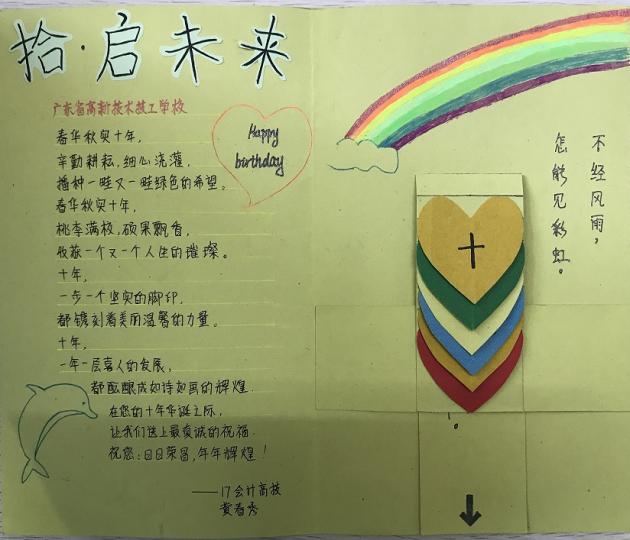 拾·启未来
广东省高新技术技工学校
春华秋实十年,
辛勤耕耘,细心浇灌,
播种一畦又一畦绿色的希望。
春华秋实十年,
桃李满校,硕果飘香,
收获一个又一个人生的璀璨。
十年,
一步一个坚实的脚印,
都镌刻着美丽温馨的力量。
十年,
一年一层喜人的发展,
都酝酿成如诗如画的辉煌.
在您的十年华诞之际,
让我们送上最真诚的祝福.
祝您:日日荣昌,年年辉煌!
——17会计高技
黄春秀
Happy
birthday
不经风雨,
怎能见彩虹。
十